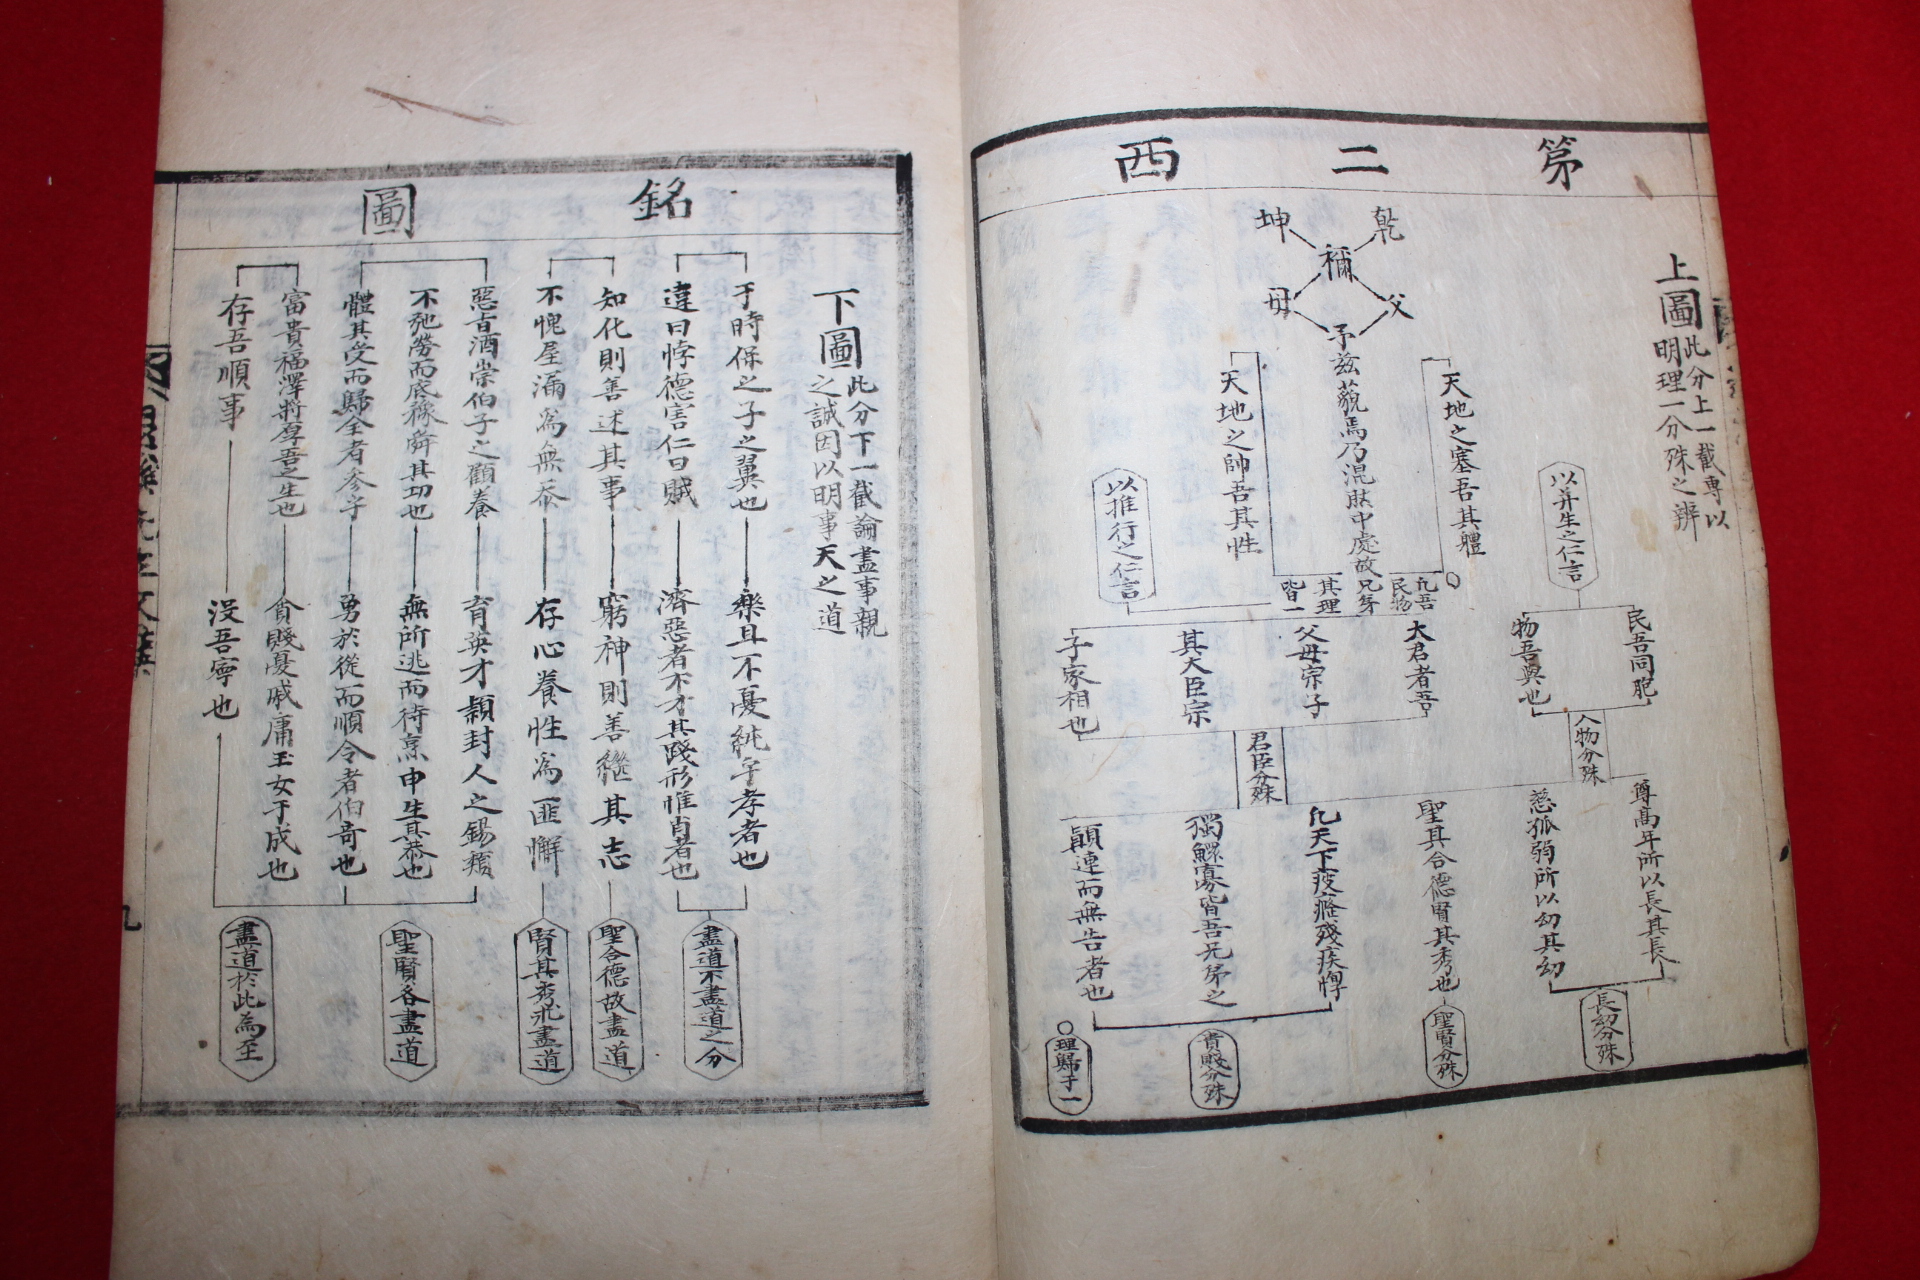 第二西
上圖此分上一截專以
明理一分殊之辨
乾
坤
稱
父
母
予玆藐焉乃混然中處故
天地之塞吾其體
天地之帥吾其性
凡吾
民物
兄弟
其理
皆一
以幷生之仁言
以推行之仁言
民吾同胞
物吾與也
大君者吾
父母宗子
其大臣宗
子家相也
人物分殊
君臣分殊
尊高年所以長其長
慈孤弱所以幼其幼
聖其合德賢其秀也
凡天下疲癃殘疾惸
獨鰥寡皆吾兄弟之
顚連而無告者也
長幼分殊
聖賢分殊
貴賤分殊
理歸于一
銘圖
下圖此分下一截論盡事親
之誠因以明事天之道
于時保之子之翼也
樂且不憂純乎孝者也
違曰悖德害仁曰賊
濟惡者不才其踐形惟肖者也
盡道不盡道之分
知化則善述其事
窮神則善繼其志
聖合德故盡道
不愧屋漏爲無忝
存心養性爲匪懈
賢其秀求盡道
惡旨酒崇伯子之顧養
育英才穎封人之錫類
不弛勞而底豫舜其功也
無所逃而待烹申生其恭也
體其受而歸全者參乎
勇於從而順令者伯奇也
聖賢各盡道
富貴福澤將厚吾之生也
貧賤憂戚庸玉女于成也
存吾順事
沒吾寧也
盡道於此爲至
九